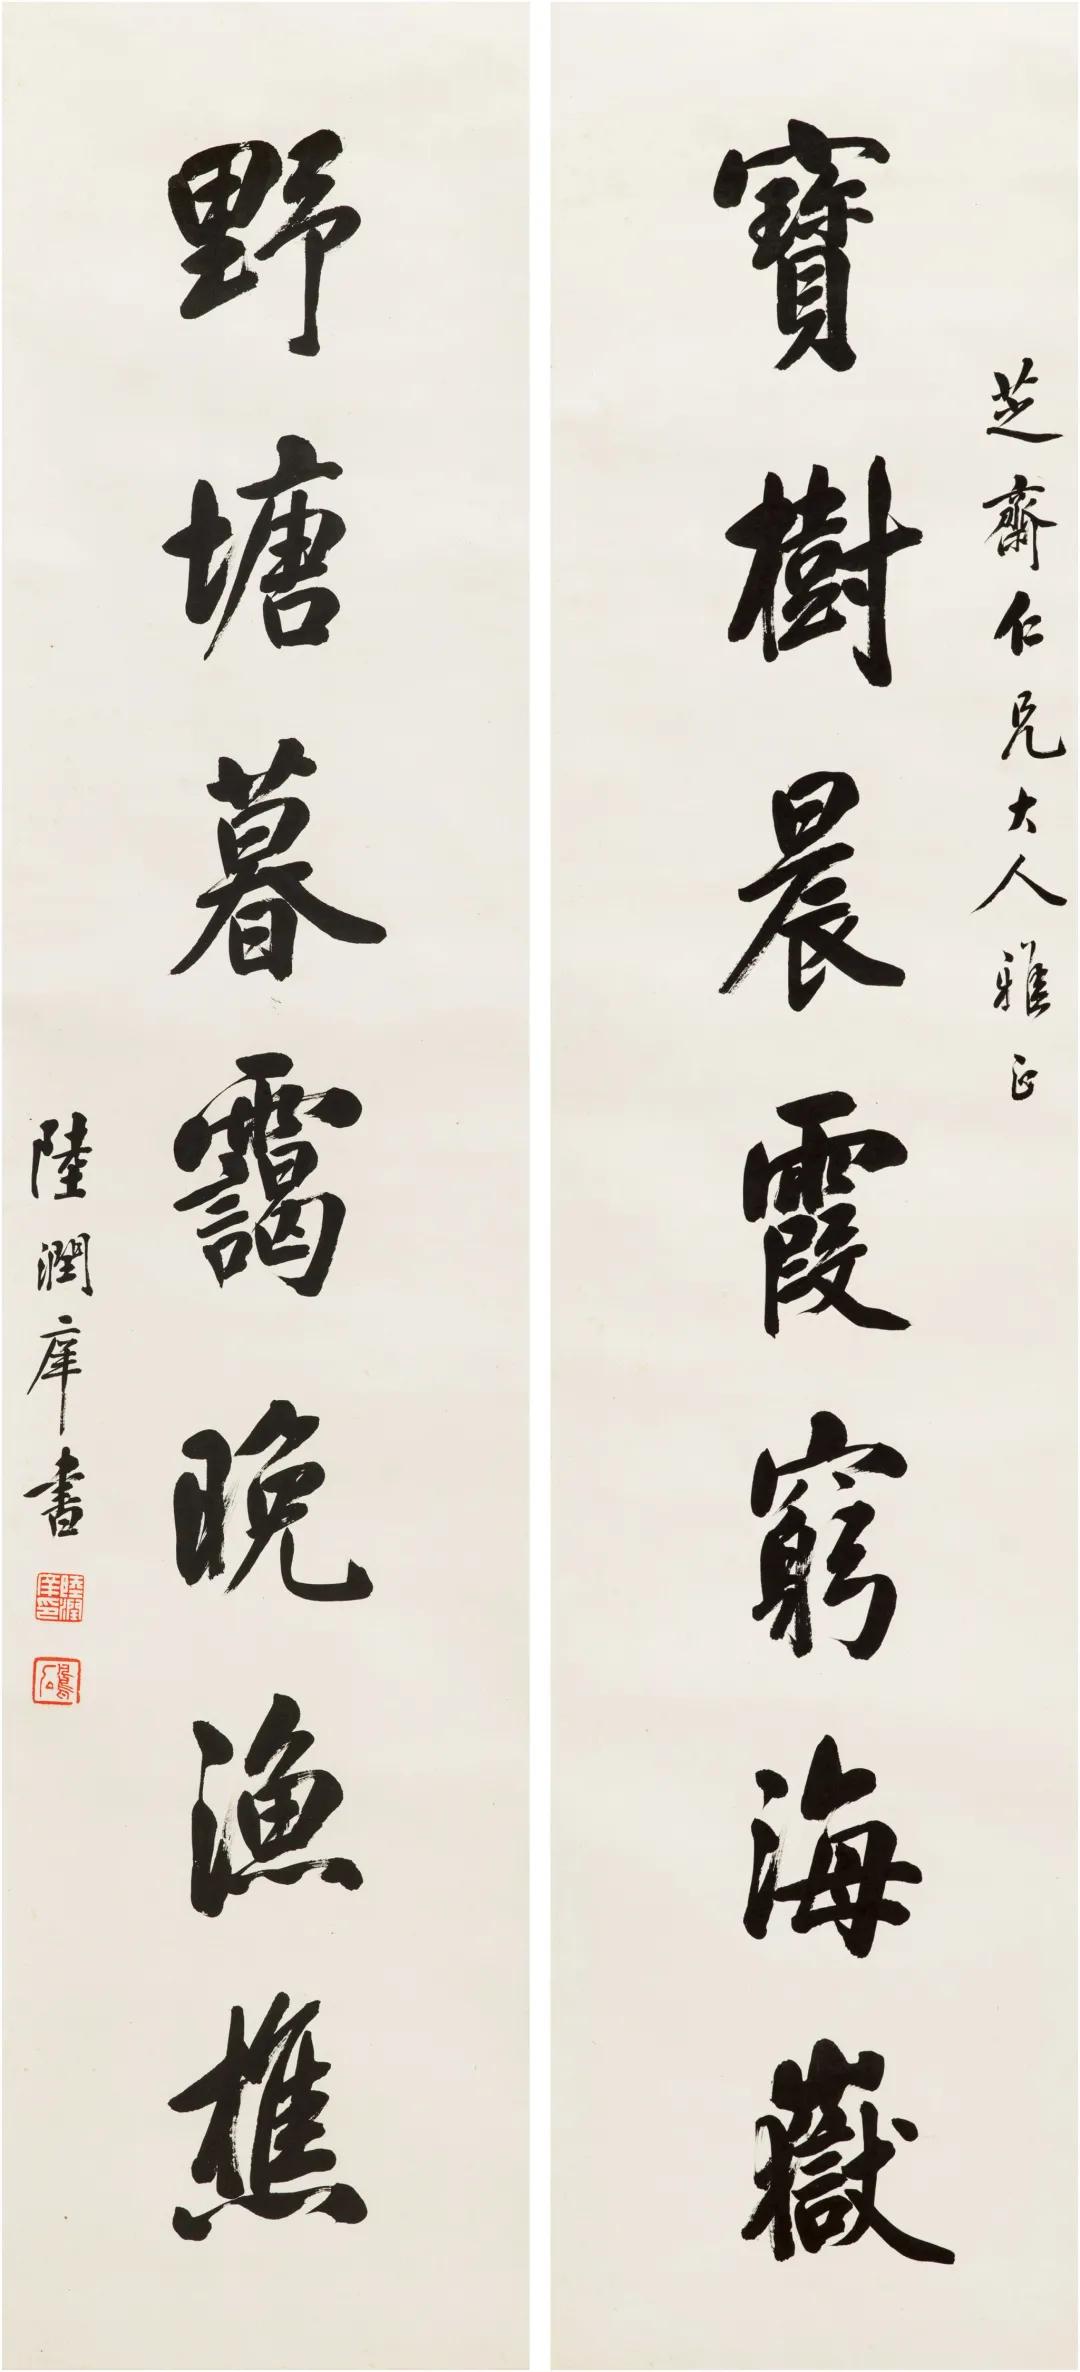 芝齋仁兄大人雅正
寶樹晨霞窮海嶽
野塘暮靄晚漁樵
陸潤庠書
陸潤庠印